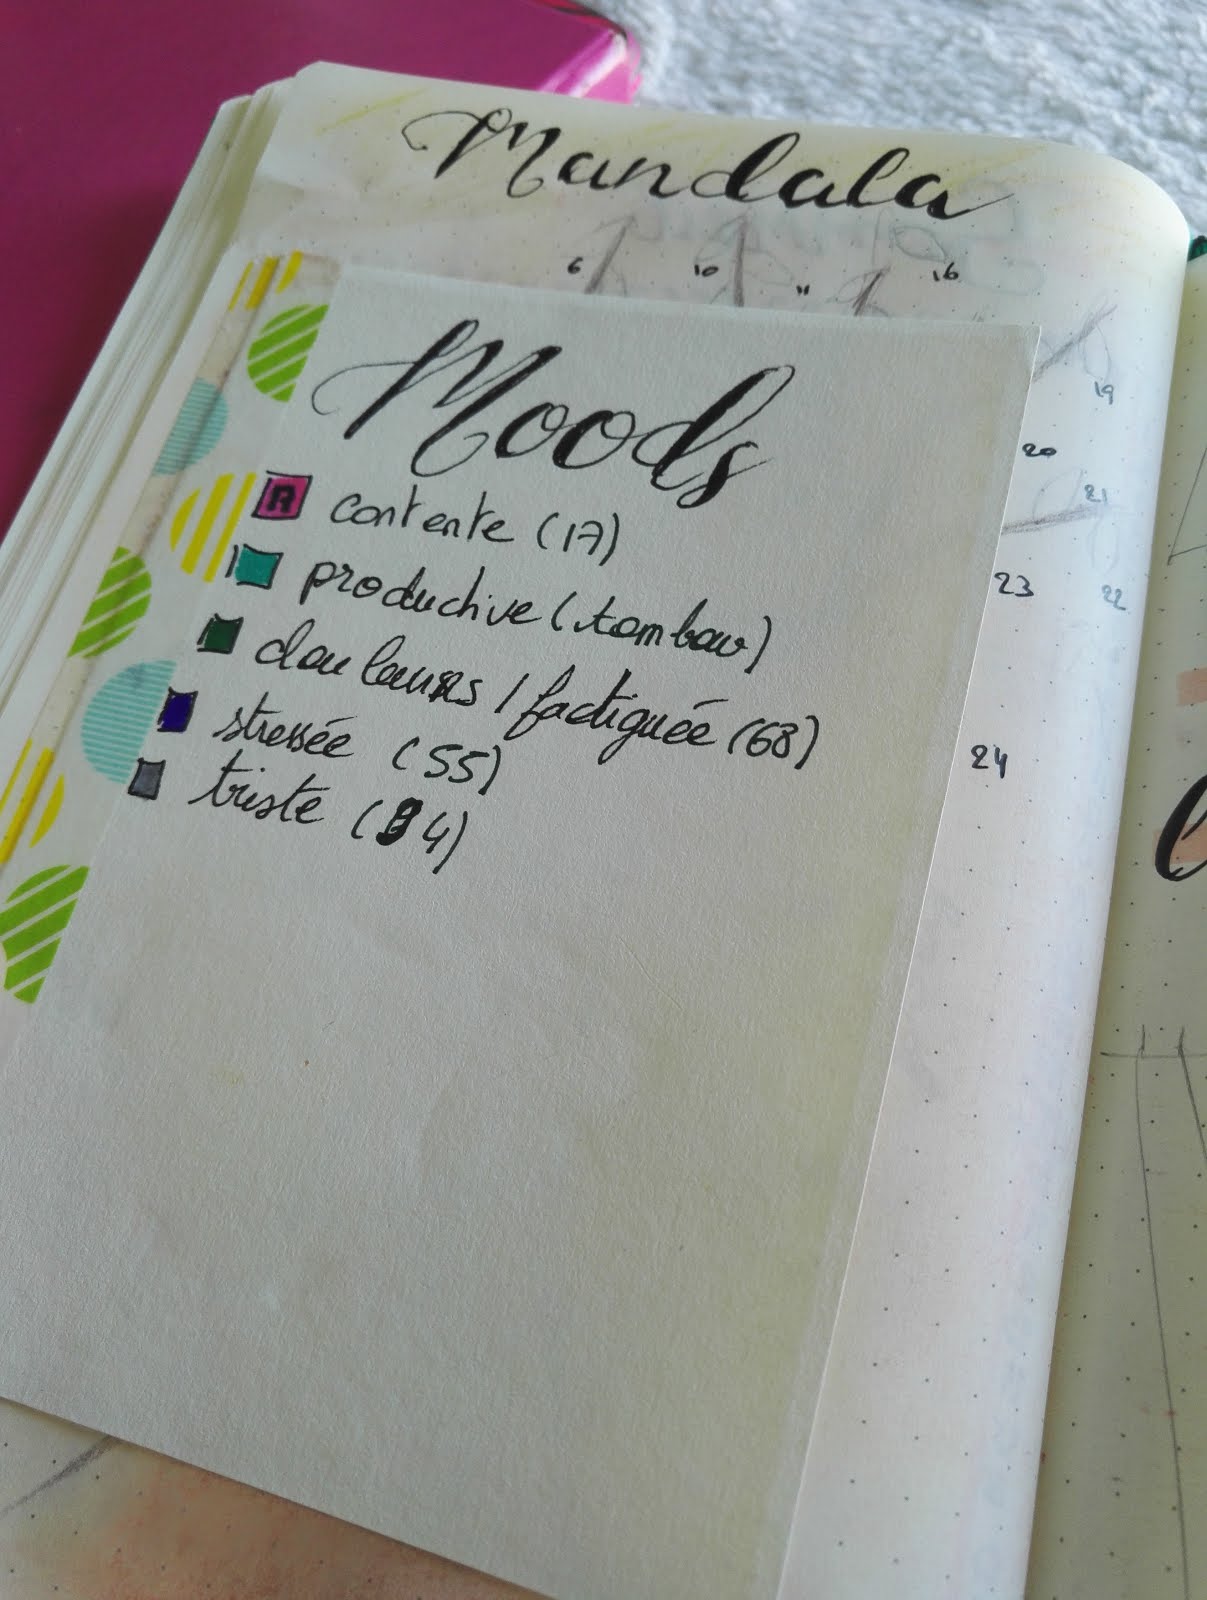 Mandala
6 10 11 16
19
20
21
23 22
24
Moods
contente (17)
productive (tombow)
douleurs / factiguée (68)
stressée (55)
triste (94)